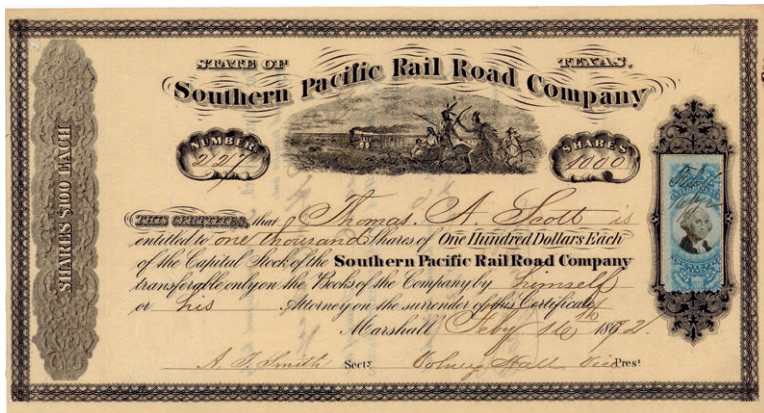 STATE OF TEXAS.
Southern Pacific Rail Road Company
NUMBER SHARES
1000
SHARES $100 EACH
THIS CERTIFIES, that Thomas. A. Scott is
entitled to one thousand Shares of One Hundred Dollars Each
of the Capital Stock of the Southern Pacific Rail Road Company
transferable only on the Books of the Company by himself
or his Attorney on the surrender of this Certificate
Marshall Feby 16th 1872.
A. T. Smith Secty. Volney Hall Vice Prest